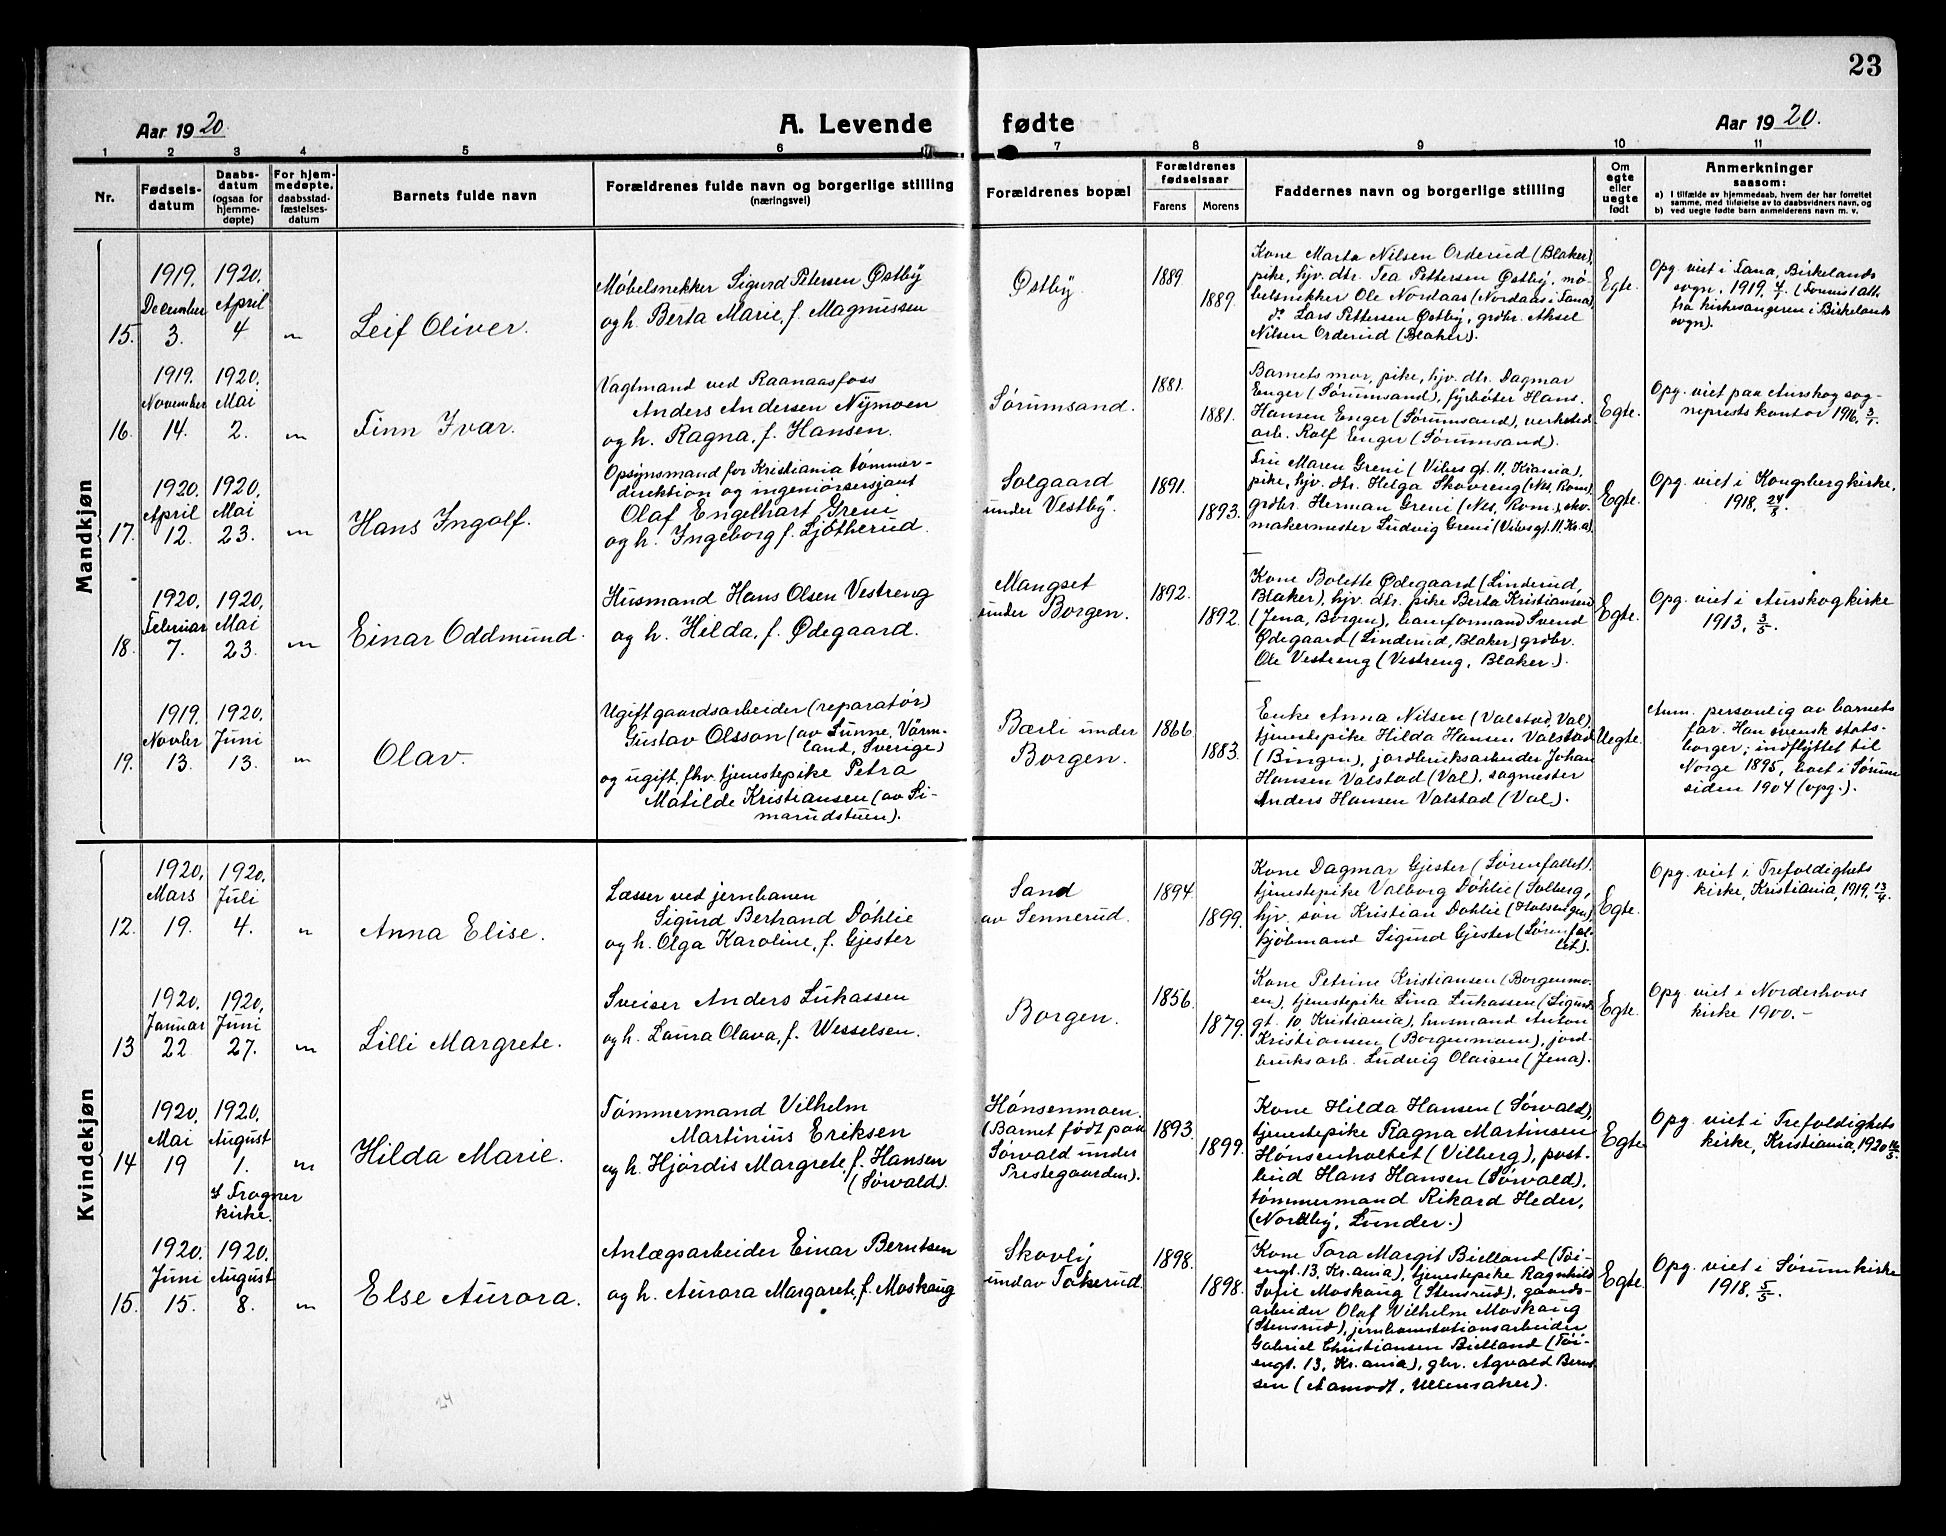 23
Aar 1920.
A. Levende fødte
Aar 1920.
1 2 3 4 5 6 7 8 9 10 11
Nr.
Fødselsdatum
Daabsdatum (ogsaa for hjemmedøpte)
For hjemmedøpte, daabsstadfæstelsesdatum
Barnets fulde navn
Forældrenes fulde navn og borgerlige stilling
(næringsvei)
Forældrenes bopæl
Forældrenes fødselsaar
Farens Morens
Faddernes navn og borgerlige stilling
Om egte eller uegte født
Anmerkninger
saasom:
a) I tilfælde av hjemmedaab, hvem der har forrettet
samme, med tilføielse av to daabsvidners navn, og
b) ved uegte fødte barn anmelderens navn m. v.
Mandkjøn
15.
1919.
December
3.
1920.
April
4
"
Leif Oliver.
Møbelsnekker Sigurd Petersen Østby
og h. Berta Marie, f. Magnussen
Østby.
1889
1889.
Kone Marta Nilsen Orderud (Blaker),
pike, hjv. dtr. Tea Pettersen Østby, mø-
belsnekker Ole Nordaas (Nordaas i Fana),
do Lars Pettersen Østby, grdbr. Aksel
Nilsen Orderud (Blaker).
Egte.
Opg. viet i Fana, Birkelands
sogn, 1919,
fra kirkesangeren i Birkeland
sogn).
16.
1919.
November
14.
1920.
Mai
2.
"
Finn Ivar.
Vagtmand ved Raanaasfoss
Anders Andersen Nymoen
og h. Ragna, f. Hansen.
Sørumsand.
1881.
1881.
Barnets mor, pike, hjv. dtr. Dagmar
Enger (Sørumsand), fyrbøter Hans
Hansen Enger (Sørumsand), verksted-
arb. Rolf Enger (Sørumsand).
Egte.
Opg. viet paa Aurskog sog-
neprests kontor 1916, 3/1.
17.
1920.
April
12.
1920.
Mai
23.
"
Hans Ingolf.
Opsynsmand for Kristiania tømmer-
direktion og ingeniørsersjant
Olaf Engelhart Greni
og h. Ingeborg f. Sjøtherud.
Solgaard
under Vestby.
1891.
1893.
Fru Maren Greni (Vibes gt. 11, Kr.ania),
pike, hjv. dtr. Helga Skovreng (Nes, Rom.)
grdbr. Herman Greni (Nes, Rom.), sko-
makermester Ludvig Greni (Vibes gt. 11. Kr.a).
Egte.
Opg. viet i Kongsberg kirke,
1918, 24/8.
18.
1920.
Februar
7.
1920.
Mai
23.
"
Einar Oddmund.
Husmand Hans Olsen Vestreng
og h. Helda, f. Ødegaard.
Mangset
under Borgen.
1892.
1892.
Kone Bolette Ødegaard (Linderud,
Blaker), hjv. dtr. pike Berta Kristiansen
(Jena, Borgen), baneformand Svend
Ødegaard (Linderud, Blaker) grdbr.
Ole Vestreng (Vestreng, Blaker.).
Egte.
Opg. viet i Aurskog kirke
1913, 3/5.
19.
1919.
Novbr
13.
1920.
Juni
13.
"
Olav.
Ugift gaardsarbeider (reparatør)
Gustav Olsson (av Sunne, Värm-
land, Sverige)
og ugift, fhv. tjenestepike Petra
Matilde Kristiansen (av Si-
marudstuen).
Bærli under
Borgen.
1866.
1883.
Enke Anna Nilsen (Valstad, Val),
tjenestepike Hilda Hansen Valstad
(Bingen), jordbruksarbeider Johan
Hansen Valstad (Val), sagmester
Anders Hansen Valstad (Val).
Uegte.
Anm. personlig av barnets
far. Han svensk stats-
borger; indflyttet til
Norge 1895, boet i Sørum
siden 1904 (opg.).
Kvindekjøn
12.
1920,
Mars
19.
1920.
Juli
4.
"
Anna Elise.
Læsser ved jernbanen
Sigurd Bertrand Døhlie
og h. Olga Karoline, f. Gjester
Sand
av Sennerud.
1894.
1899.
Kone Dagmar Gjester (Sørenfallet)
tjenestepike Valborg Døhlie (Solberg,
hjv. søn Kristian Døhlie
kjøbmand Sigurd Gjester (Sørenfal-
let).
Egte.
Opg. viet i Trefoldighets
kirke, Kristiania, 1919, 13/4.
13
1920.
Januar
22
1920,
Juni
27.
"
Lilli Margrete.
Sveiser Anders Lukassen
og h. Laura Olava, f. Wesselsen.
Borgen.
1856.
1879.
Kone Petrine Kristiansen (Borgenmo-
en), tjenestepike Lina Lukassen (Sigurds
gt. 10, Kristiania), husmand Anton
Kristiansen (Borgenmoen), jord-
bruksarb. Ludvig Olaisen (Jena).
Egte.
Opg. viet i Norderhovs
kirke 1900.-
14
1920,
Mai
19
1920.
August
1.
I Frogner
kirke.
"
Hilda Marie.
Tømmermand Vilhelm
Martinius Eriksen
og h. Hjørdis Margrete, f. Hansen
(Sørvald).
Hønsenmoen.
(Barnet født paa
Sørvald under
Prestegaarden).
1893.
1899.
Kone Hilda Hansen (Sørvald),
tjenestepike Ragna Martinsen
Hønsenholtet (Vilberg), post-
bud Hans Hansen (Sørvald),
tømmermand Rikard Heder,
(Nordby, Lunder.)
Egte
Opg. viet i Trefoldighets
kirke, Kristiania, 1920
15.
1920.
Juni
15.
1920.
August
8.
"
Else Aurora.
Anlægsarbeider Einar Berntsen
og h. Aurora Margarete, f. Moskaug
Skovly
undav Tøkerud.
1898.
1898.
Kone Tora Margit Bielland (Tøi-
engt. 13, Kr.ania), tjenestepike Ragnhild
Sofie Moskaug (Stensrud), gaards-
arbeider Olaf Vilhelm Moskaug
(Stensrud), jernbanestationsarbeider
Gabriel Christiansen Bielland (Tøi-
engt. 13, Kr.ania), gbr. Agvald Bernt
sen (Aamodt, Ullensaker).
Egte.
Opg. viet i Sørum kirke
1918, 5/5.
24